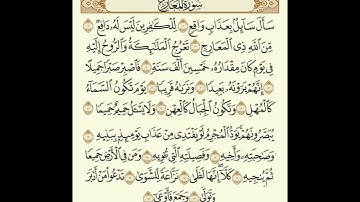 سُورَةُ المَعَارِجِ
سَأَلَ سَآئِلُۢ بِعَذَابٖ وَاقِعٖ ۝ لِّلۡكَٰفِرِينَ لَيۡسَ لَهُۥ دَافِعٞ ۝
مِّنَ ٱللَّهِ ذِي ٱلۡمَعَارِجِ ۝ تَعۡرُجُ ٱلۡمَلَٰٓئِكَةُ وَٱلرُّوحُ إِلَيۡهِ
فِي يَوۡمٖ كَانَ مِقۡدَارُهُۥ خَمۡسِينَ أَلۡفَ سَنَةٖ ۝ فَٱصۡبِرۡ صَبۡرٗا جَمِيلًا
۝ إِنَّهُمۡ يَرَوۡنَهُۥ بَعِيدٗا ۝ وَنَرَىٰهُ قَرِيبٗا ۝ يَوۡمَ تَكُونُ ٱلسَّمَآءُ
كَٱلۡمُهۡلِ ۝ وَتَكُونُ ٱلۡجِبَالُ كَٱلۡعِهۡنِ ۝ وَلَا يَسۡـَٔلُ حَمِيمٌ حَمِيمٗا ۝
يُبَصَّرُونَهُمۡۚ يَوَدُّ ٱلۡمُجۡرِمُ لَوۡ يَفۡتَدِي مِنۡ عَذَابِ يَوۡمِئِذِۭ بِبَنِيهِ
۝ وَصَٰحِبَتِهِۦ وَأَخِيهِ ۝ وَفَصِيلَتِهِ ٱلَّتِي تُـٔۡوِيهِ ۝ وَمَن فِي ٱلۡأَرۡضِ جَمِيعٗا
ثُمَّ يُنجِيهِ ۝ كَلَّآۖ إِنَّهَا لَظَىٰ ۝ نَزَّاعَةٗ لِّلشَّوَىٰ ۝ تَدۡعُواْ مَنۡ أَدۡبَرَ
وَتَوَلَّىٰ ۝ وَجَمَعَ فَأَوۡعَىٰٓ ۝